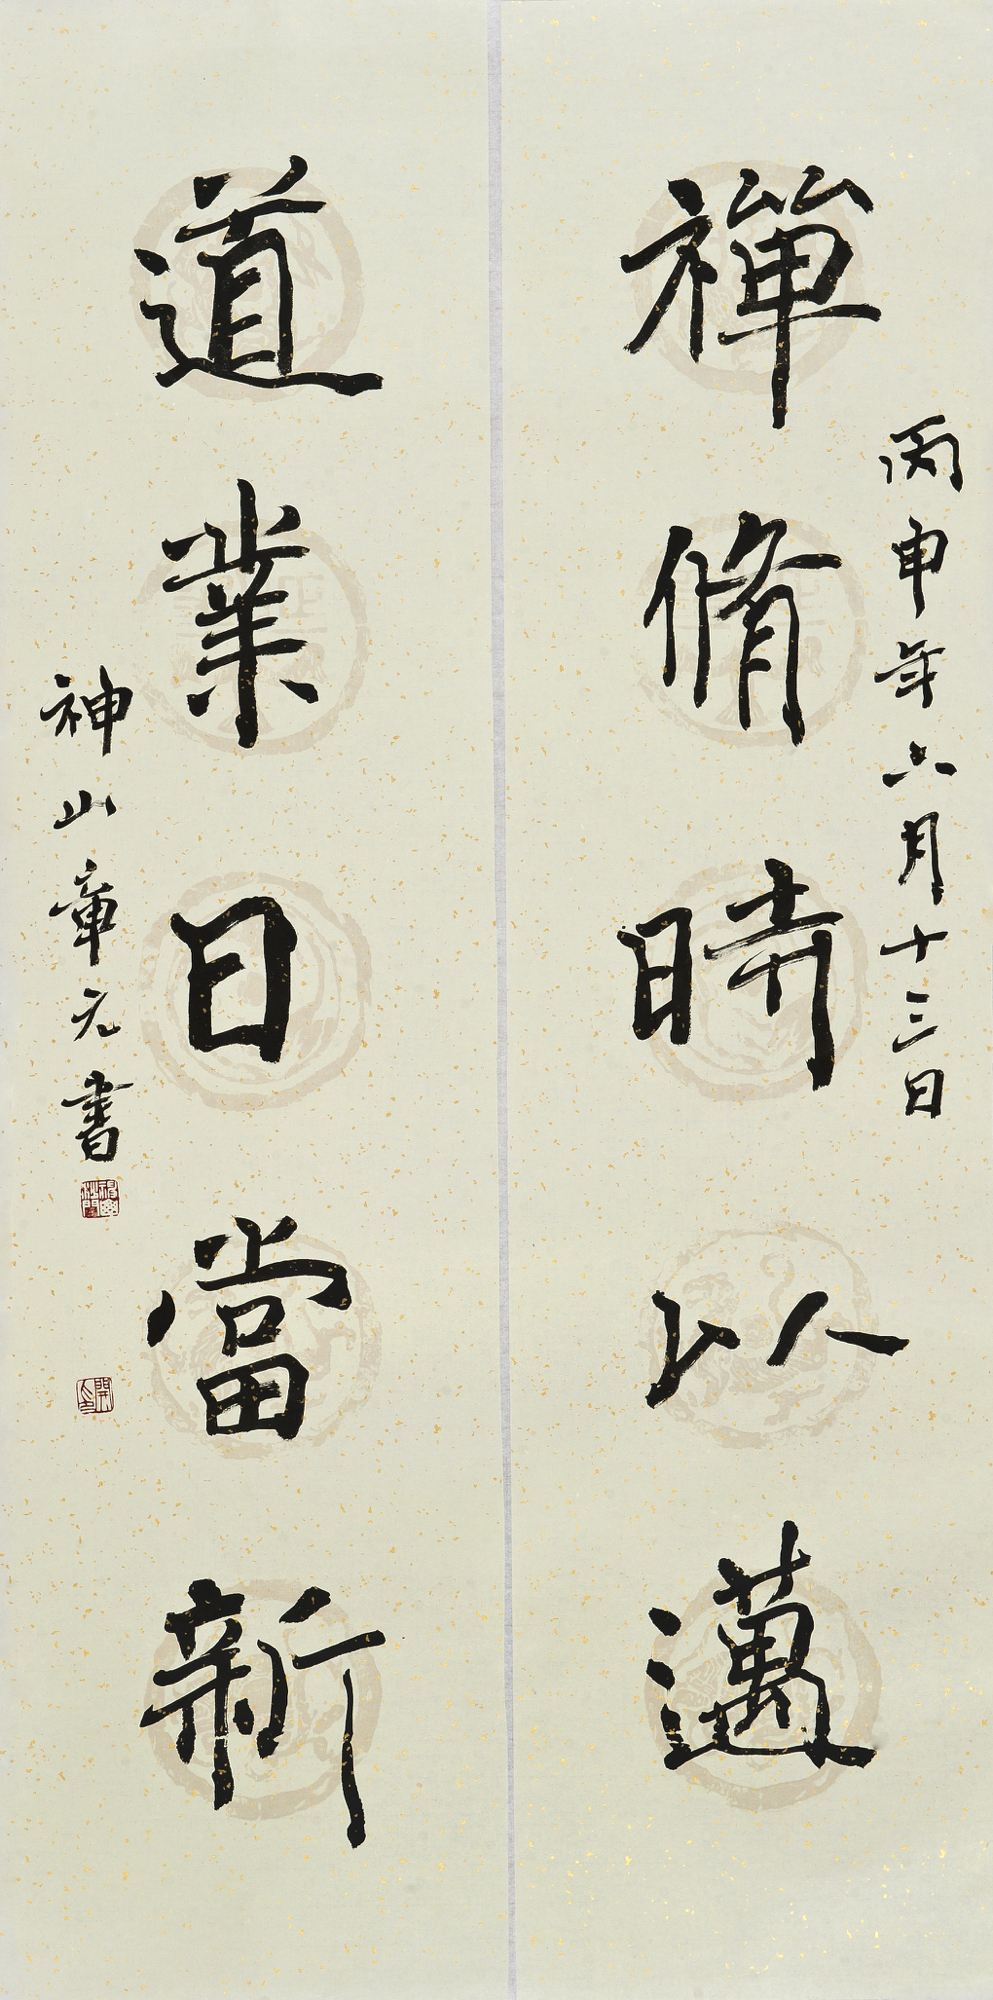 丙申年六月十三日
禪脩時以邁
道業日當新
神山章元書